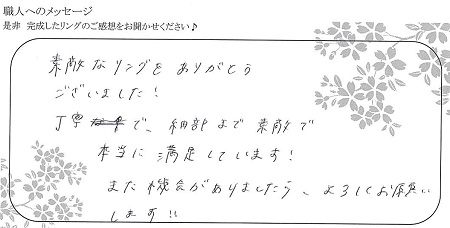 職人へのメッセージ
是非 完成したリングのご感想をお聞かせください♪
素敵なリングをありがとう
ございました!
丁寧で、細部まで素敵で
本当に満足しています!
また機会がありましたら、よろしくお願い
します!!